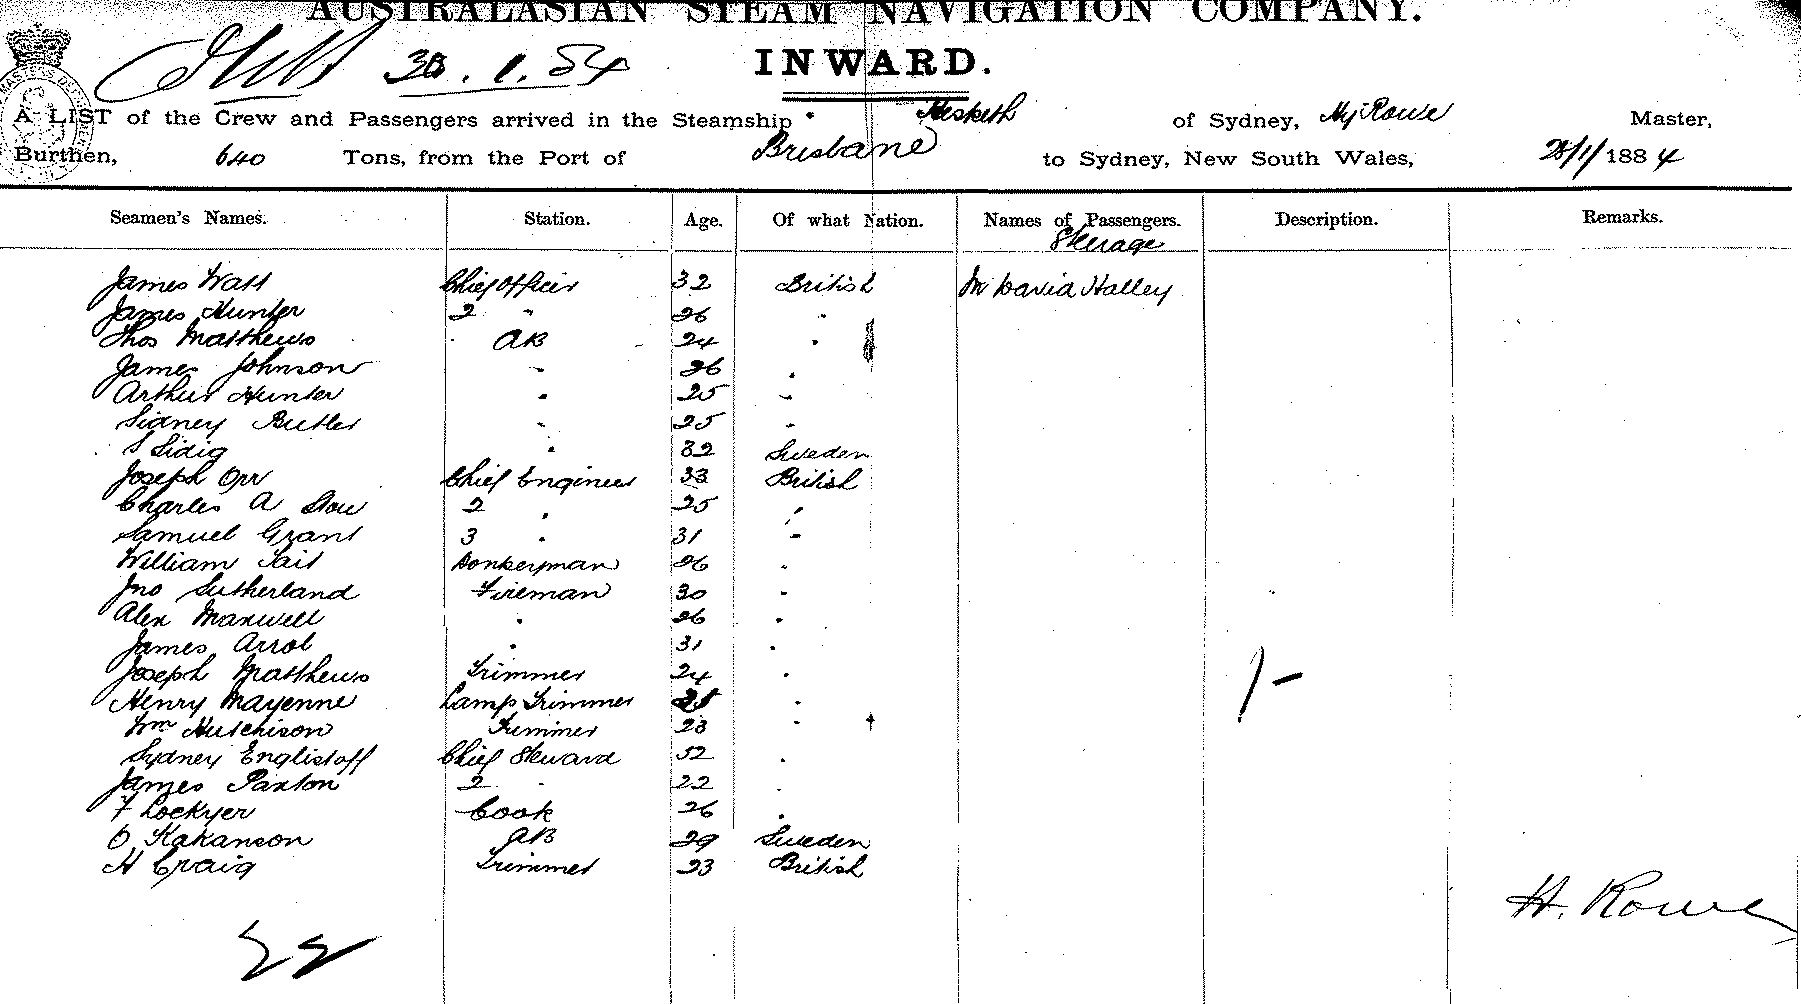 AUSTRALASIAN STEAM NAVIGATION COMPANY.
30.1.84 INWARD.
A LIST of the Crew and Passengers arrived in the Steamship Hesketh of Sydney, Hy Rowe Master,
Burthen, 640 Tons, from the Port of Brisbane to Sydney, New South Wales, 28/1/1884
Seamen's Names. Station. Age. Of what Nation. Names of Passengers. Description. Remarks.
Steerage
James Watt Chief Officer 32 British Mr David Halley
James Hunter 2 " 26 "
Thos Matthews AB 24 "
James Johnson " 26 "
Arthur Hunter " 25 "
Sidney Butler " 25 "
S Sidig " 32 Sweden
Joseph Orr Chief Engineer 33 British
Charles A Stow 2 " 25 "
Samuel Grant 3 " 31 "
William Tait Donkeyman 26 "
Jno Sutherland Fireman 30 "
Alex Maxwell " 26 "
James Arrol " 31 "
Joseph Matthews Trimmer 24 "
Henry Mayenne Lamp Trimmer "
Wm Hutchison Trimmer 23 "
Sydney Englistoff Chief Steward 32 "
James Paxton 2 " 22 "
F Lockyer Cook 26 "
O Kakanson AB 29 Sweden
H Craig Trimmer 23 British
H. Rowe
22